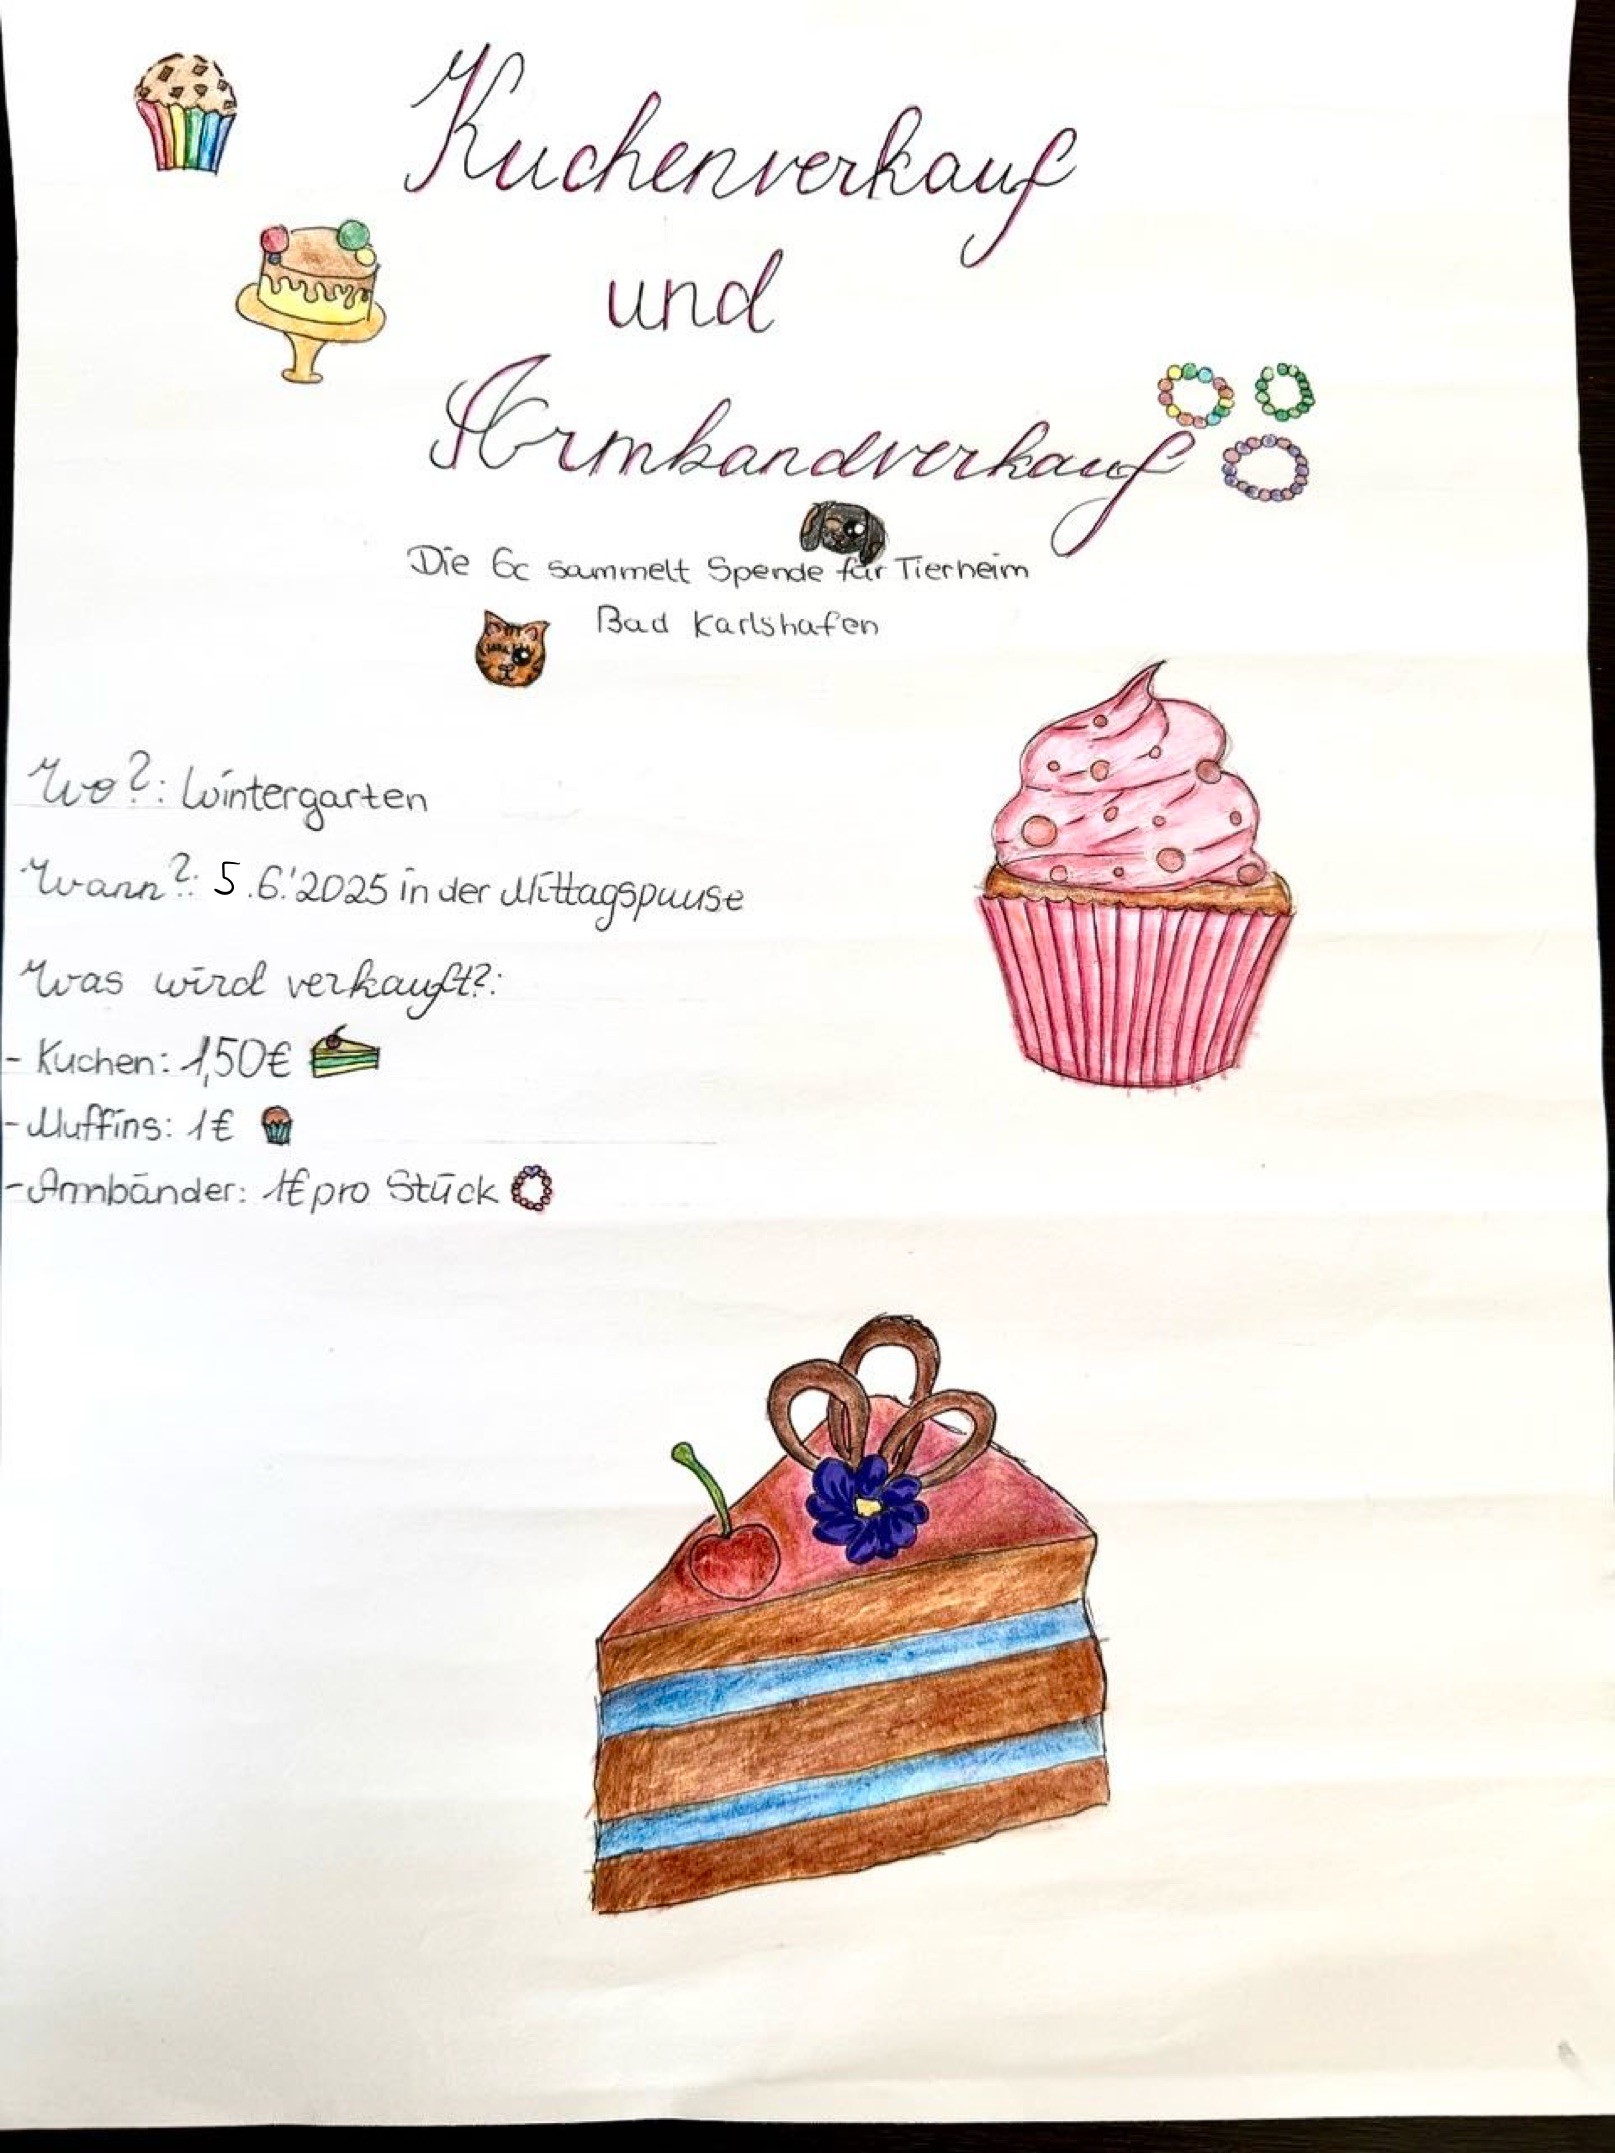 Kuchenverkauf
und
Armbandverkauf
Die 6c sammelt Spende für Tierheim
Bad Karlshafen
Wo?: Wintergarten
Wann?: 5.6.'2025 in der Mittagspause
Was wird verkauft?:
- Kuchen: 1,50€
- Muffins: 1€
- Armbänder: 1€ pro Stück